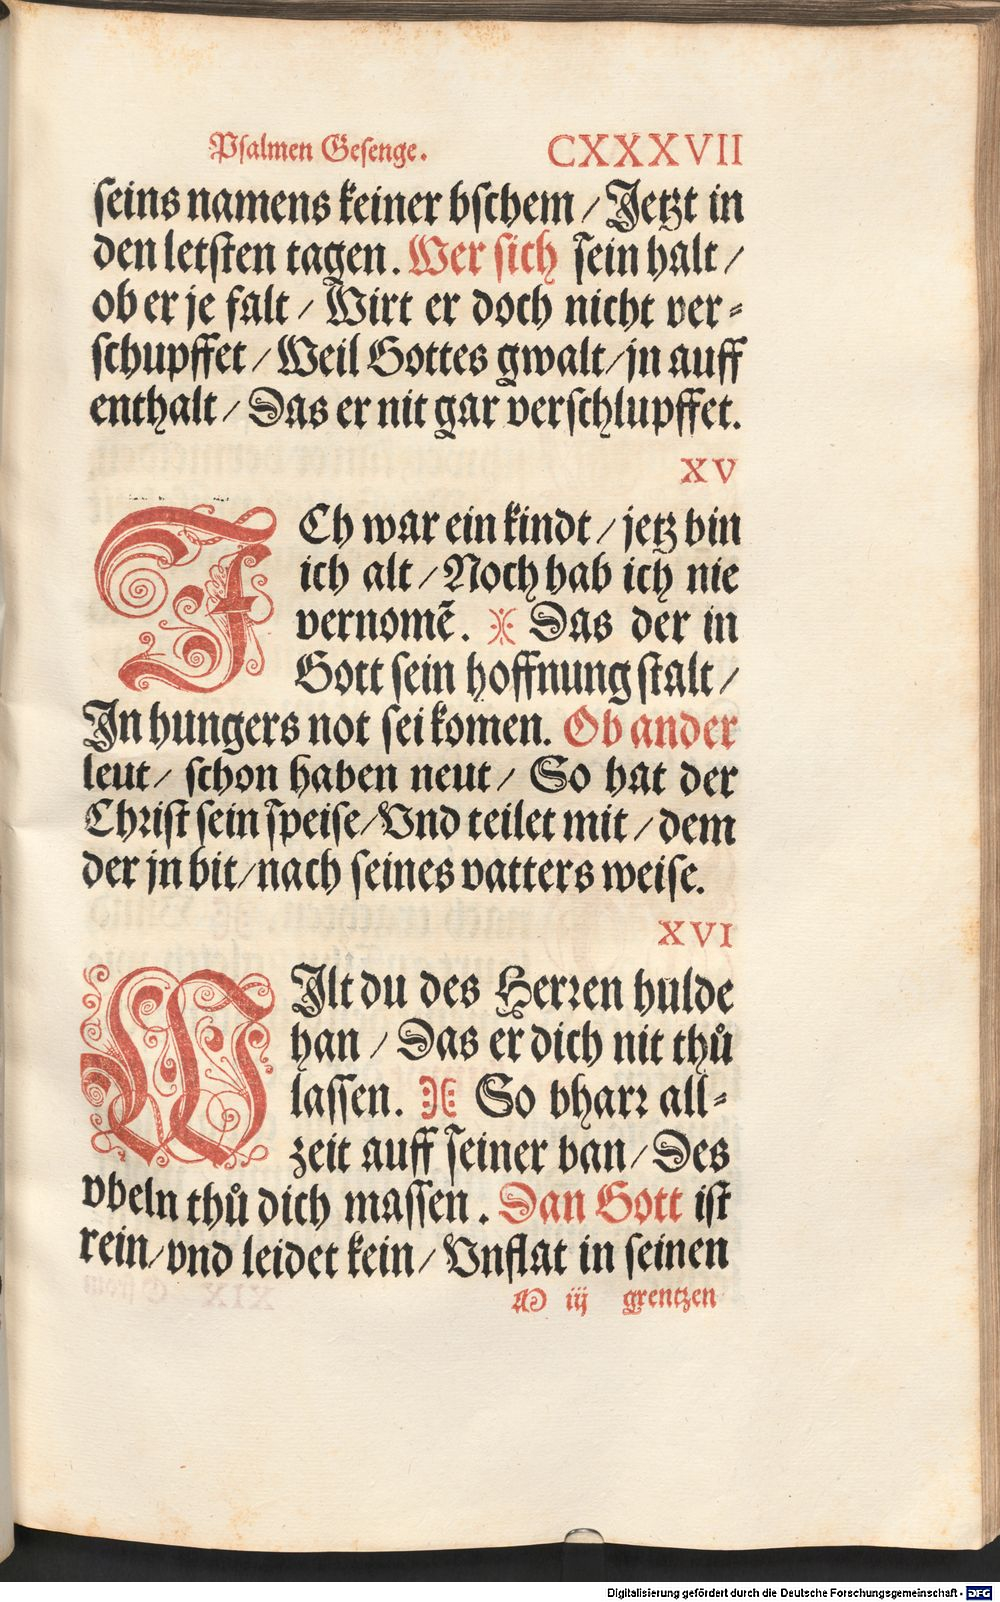 Psalmen Gesenge. CXXXVII
seins namens keiner bschem / Jetzt in
den letsten tagen. Wer sich sein halt /
ob er je falt / Wirt er doch nicht ver⸗
schupffet / Weil Gottes gwalt / jn auff
enthalt / Das er nit gar verschlupffet.
XV
ICh war ein kindt / jetz bin
ich alt / Noch hab ich nie
vernomẽ. Das der in
Gott sein hoffnung stalt /
In hungers not sei komen. Ob ander
leut / schon haben neut / So hat der
Christ sein speise / Vnd teilet mit / dem
der jn bit / nach seines vatters weise.
XVI
WIlt du des Herren hulde
han / Das er dich nit thů
lassen. So bharr all⸗
zeit auff seiner ban / Des
vbeln thů dich massen. Dan Gott ist
rein / vnd leidet kein / Vnflat in seinen
M iij grentzen
Digitalisierung gefördert durch die Deutsche Forschungsgemeinschaft - DFG